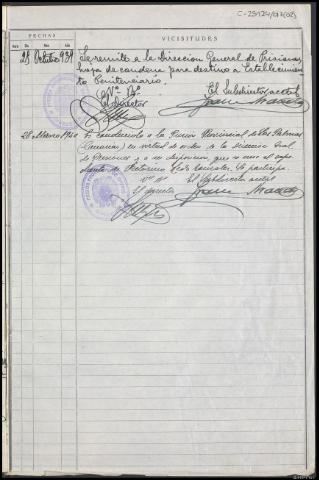 FECHAS
VICISITUDES
Día Mes Año
25 Octubre 939
Se remite a la Direccion General de Prisiones
hoja de condena para destino a Establecimien-
to Penitenciario.
Vº Bº El Subdirector acctal
El Director
28 Marzo 1940
Es conducido a la Prision Provincial de Las Palmas
(Canarias) en virtud de orden de la Direccion Gral
de Prisiones y a su disposicion, que se une al expe
diente de
Vº Bº El Subdirector acctal
El Director